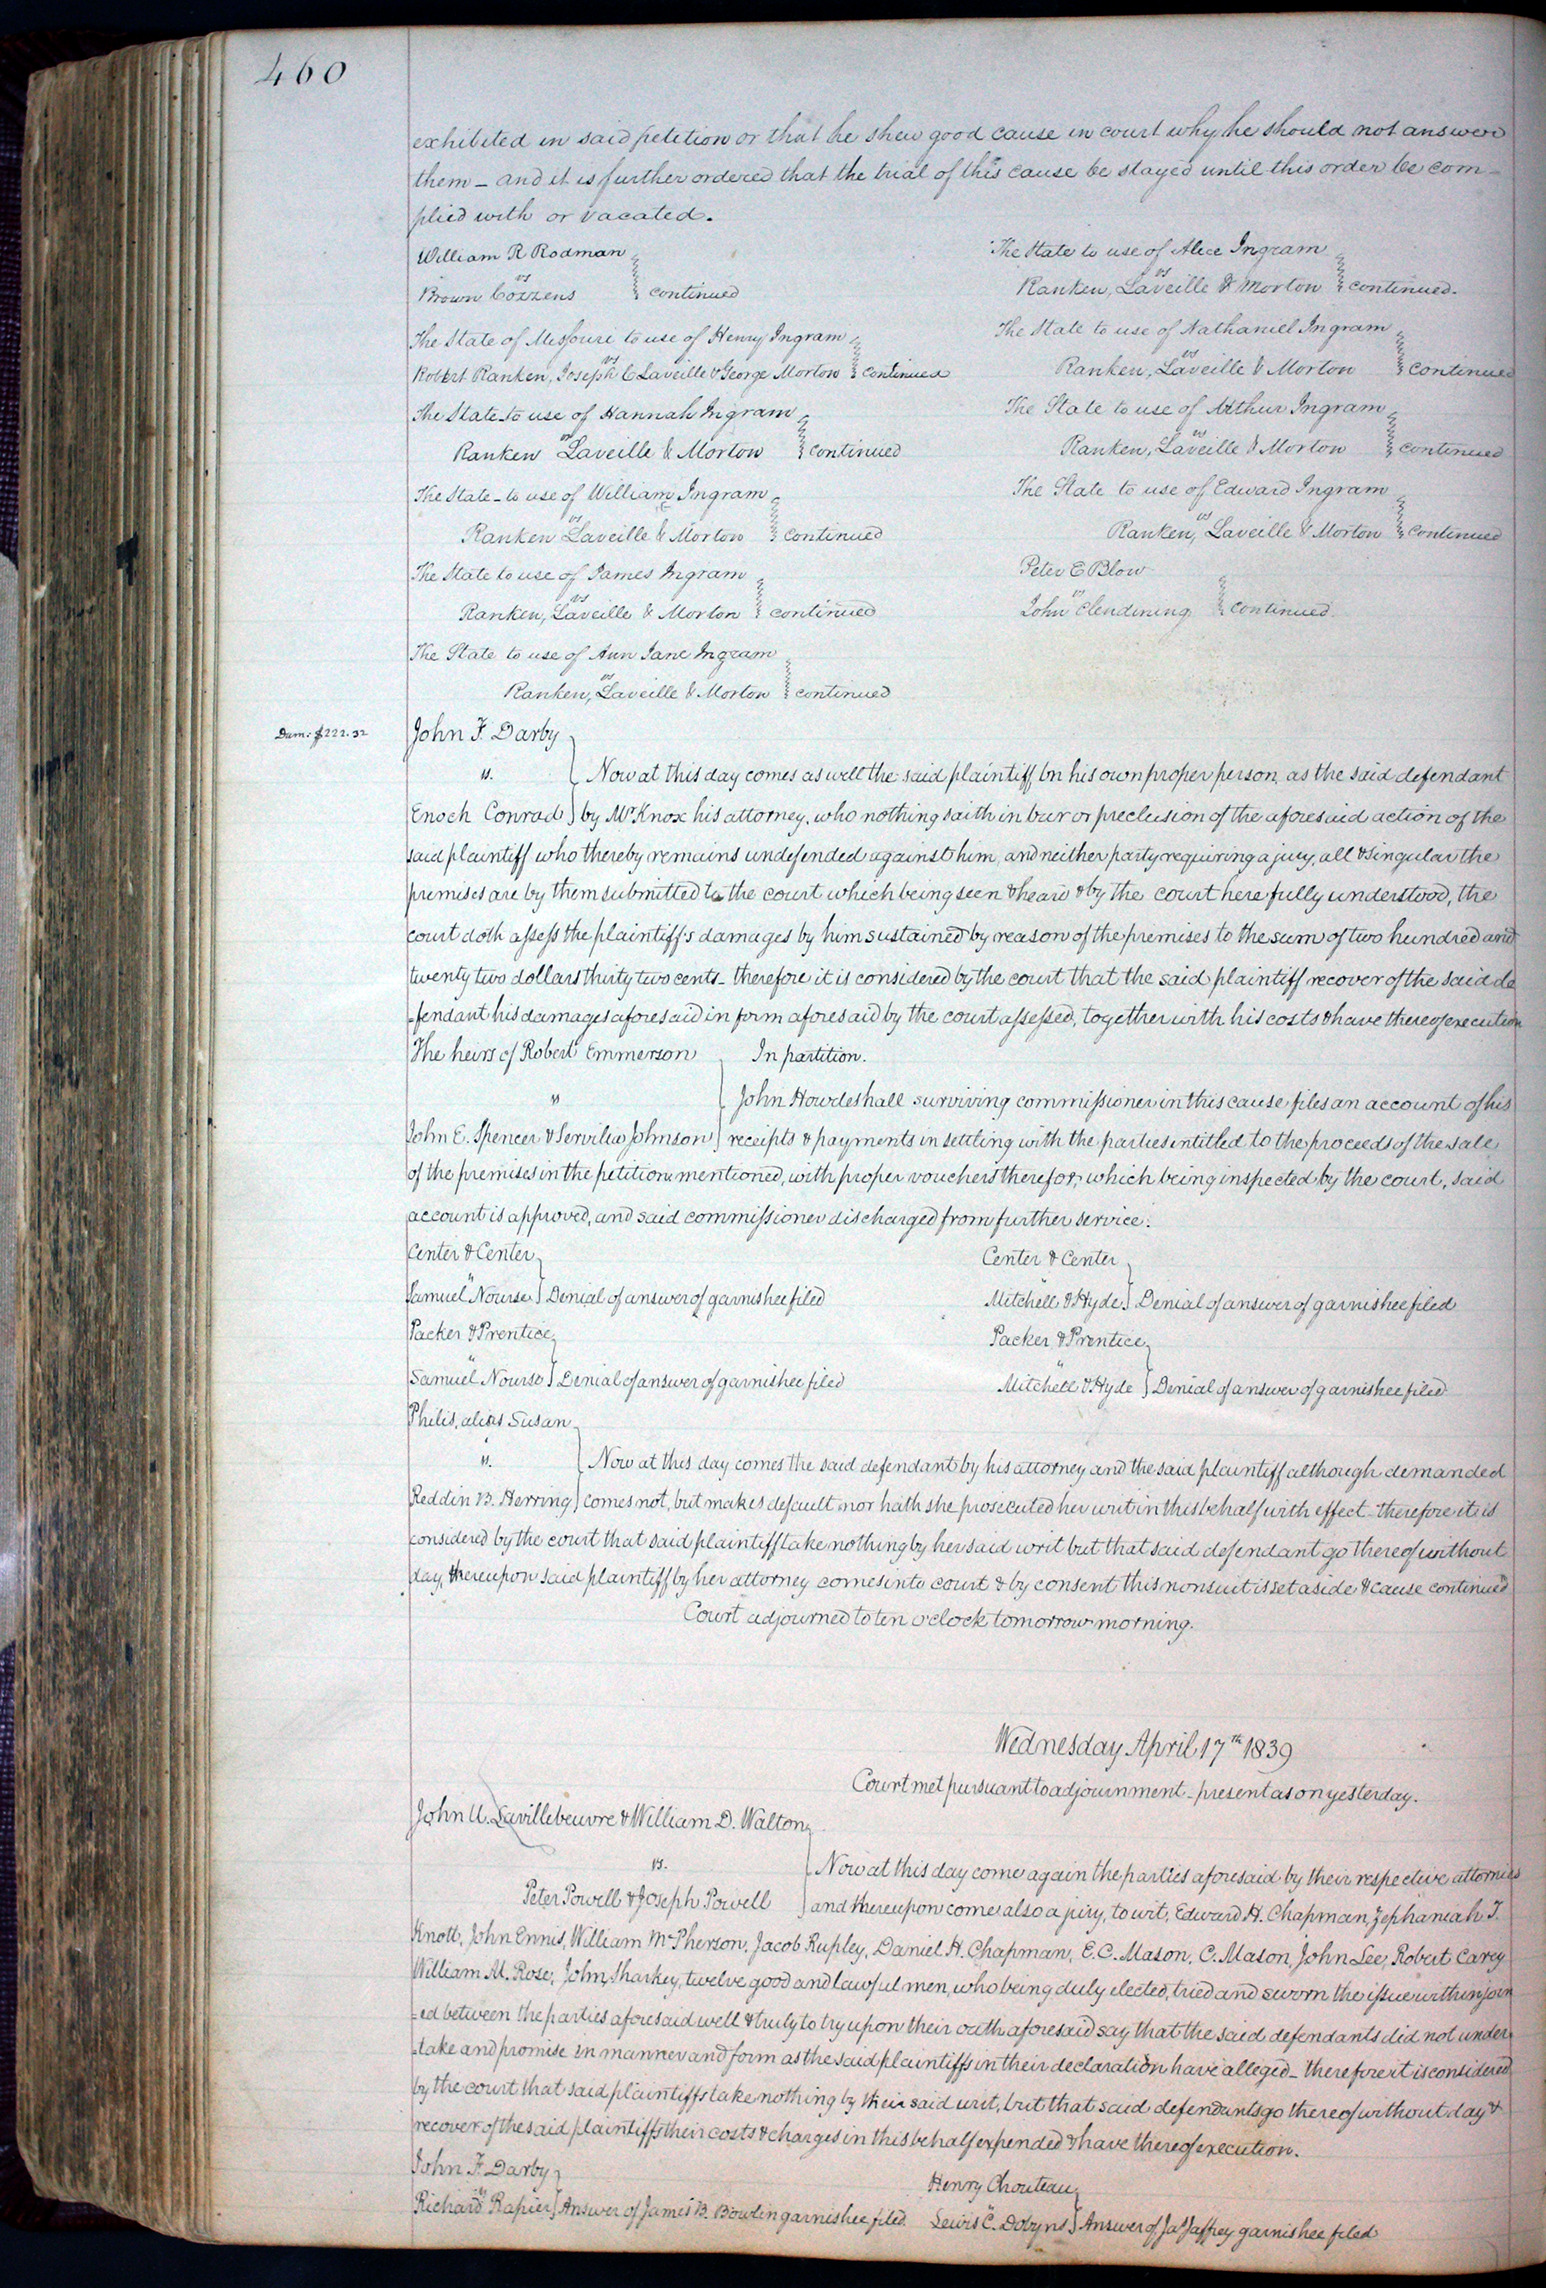 460
exhibited in said petition or that he shew good cause in court why he should not answer
them - and it is further ordered that the trial of this cause be stayed until this order be com-
plied with or vacated.
William R Rodman
vs
Brown Cozzens } continued
The State of Missouri to use of Henry Ingram
vs
Robert Ranken, Joseph C Laveille & George Morton } continued
The State to use of Hannah Ingram
vs
Ranken Laveille & Morton } continued
The State - to use of William Ingram
vs
Ranken Laveille & Morton } continued
The State to use of James Ingram
vs
Ranken, Laveille & Morton } continued
The State to use of Ann Jane Ingram
vs
Ranken, Laveille & Morton } continued
The State to use of Alice Ingram
vs
Ranken, Laveille & Morton } continued.
The State to use of Nathaniel Ingram
vs
Ranken, Laveille & Morton } continued
The State to use of Arthur Ingram
vs
Ranken, Laveille & Morton } continued
The State to use of Edward Ingram
vs
Ranken, Laveille & Morton } continued
Peter E Blow
vs
John Clendining } continued.
Dam: $222.32
John F. Darby
vs. } Now at this day comes as well the said plaintiff in his own proper person, as the said defendant
Enoch Conrad } by Mr Knox his attorney, who nothing saith in bar or preclusion of the aforesaid action of the
said plaintiff who thereby remains undefended against him, and neither party requiring a jury, all & singular the
premises are by them submitted to the court which being seen & heard & by the court here fully understood, the
court doth assess the plaintiff's damages by him sustained by reason of the premises to the sum of two hundred and
twenty two dollars thirty two cents - therefore it is considered by the court that the said plaintiff recover of the said de
=fendant his damages aforesaid in form aforesaid by the court assessed, together with his costs & have thereof execution
The heirs of Robert Emmerson } In partition.
vs } John Howdeshall surviving commissioner in this cause files an account of his
John E. Spencer & Servilia Johnson } receipts & payments in settling with the parties intitled to the proceeds of the sale
of the premises in the petition mentioned, with proper vouchers therefor, which being inspected by the court, said
account is approved, and said commissioner discharged from further service.
Center & Center
vs
Samuel Nourse } Denial of answer of garnishee filed
Center & Center
vs
Mitchell & Hyde } Denial of answer of garnishee filed
Packer & Prentice
vs
Samuel Nourse } Denial of answer of garnishee filed
Packer & Prentice
vs
Mitchell & Hyde } Denial of answer of garnishee filed
Philis, alias Susan
vs. } Now at this day comes the said defendant by his attorney and the said plaintiff although demanded
Reddin B. Herring } comes not, but makes default, nor hath she prosecuted her writ in this behalf with effect - therefore it is
considered by the court that said plaintiff take nothing by her said writ but that said defendant go thereof without
day, thereupon said plaintiff by her attorney comes into court & by consent this nonsuit is set aside & cause continued
Court adjourned to ten o'clock tomorrow morning.
Wednesday April 17th 1839
Court met pursuant to adjournment - present as on yesterday.
John U. Lavillebeuvre & William D. Walton
vs. } Now at this day come again the parties aforesaid by their respective attornies
Peter Powell & Joseph Powell } and thereupon come also a jury, to wit, Edward H. Chapman, Zephaniah T.
Knott, John Ennis, William McPherson, Jacob Rupley, Daniel H. Chapman, E.C. Mason, C. Mason, John Lee, Robert Carey
William M. Rose, John Sharkey, twelve good and lawful men, who being duly elected, tried and sworn the issue within join
=ed between the parties aforesaid well & truly to try upon their oath aforesaid say that the said defendants did not under
-take and promise in manner and form as the said plaintiffs in their declaration have alleged - therefore it is considered
by the court that said plaintiffs take nothing by their said writ, but that said defendants go thereof without day &
recover of the said plaintiffs their costs & charges in this behalf expended & have thereof execution.
John F. Darby
vs
Richard Rapier } Answer of James B. Bowlin garnishee filed.
Henry Chouteau
vs
Lewis C. Dobyns } Answer of Jas Jaffrey garnishee filed